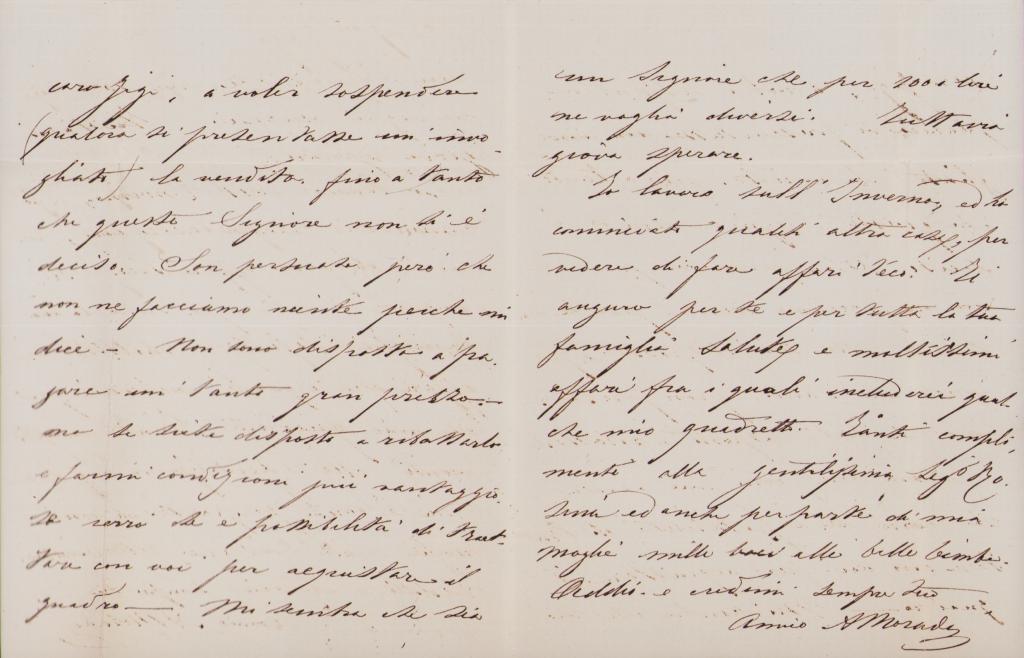 caro Gigi, a voler sospendere
(qualora si presentasse un invo-
gliato) la vendita fino a tanto
che questo Signore non si è
deciso. Son persuato però che
non ne facciamo niente perche mi
dice – Non sono disposto a pa-
gare un tanto gran prezzo –
ma se siete disposto a ribattarlo
e farmi condizioni più vantaggio-
se verrò se è possibilità di trat-
tare con voi per acquistare il
quadro – Mi sembra che sia
un Signore che per 1000 lire
ne voglia diversi. Tuttavia
giova sperare.
Io lavoro sull' Inverno, ed ho
cominciato qualche altra cosa, per
vedere di fare affari teco. Ti
auguro per te e per tutta la tua
famiglia salute e moltissimi
affari fra i quali includerei qual-
che mio quadretto. Tanti compli-
menti alla gentilissima Sig.ª Ro-
sina ed anche per parte di mia
moglie mille baci alle belle bimbe.
Addio e credimi sempre tuo
Amico A Moradei